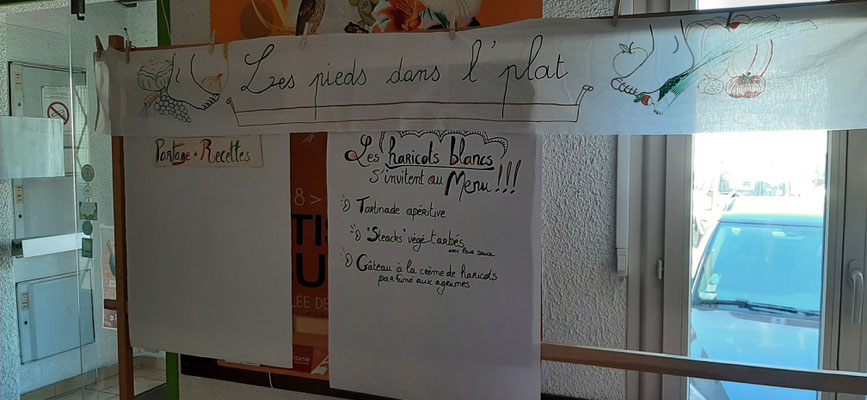 Les pieds dans l'plat
Partage de Recettes
Les haricots blancs
s'invitent au Menu!!!
Tartinade apéritive
"Steacks" végé-tarbés
avec leur sauce
Gâteau à la crème de haricots
parfumé aux agrumes
8 >
TIS
U
LÉE DE